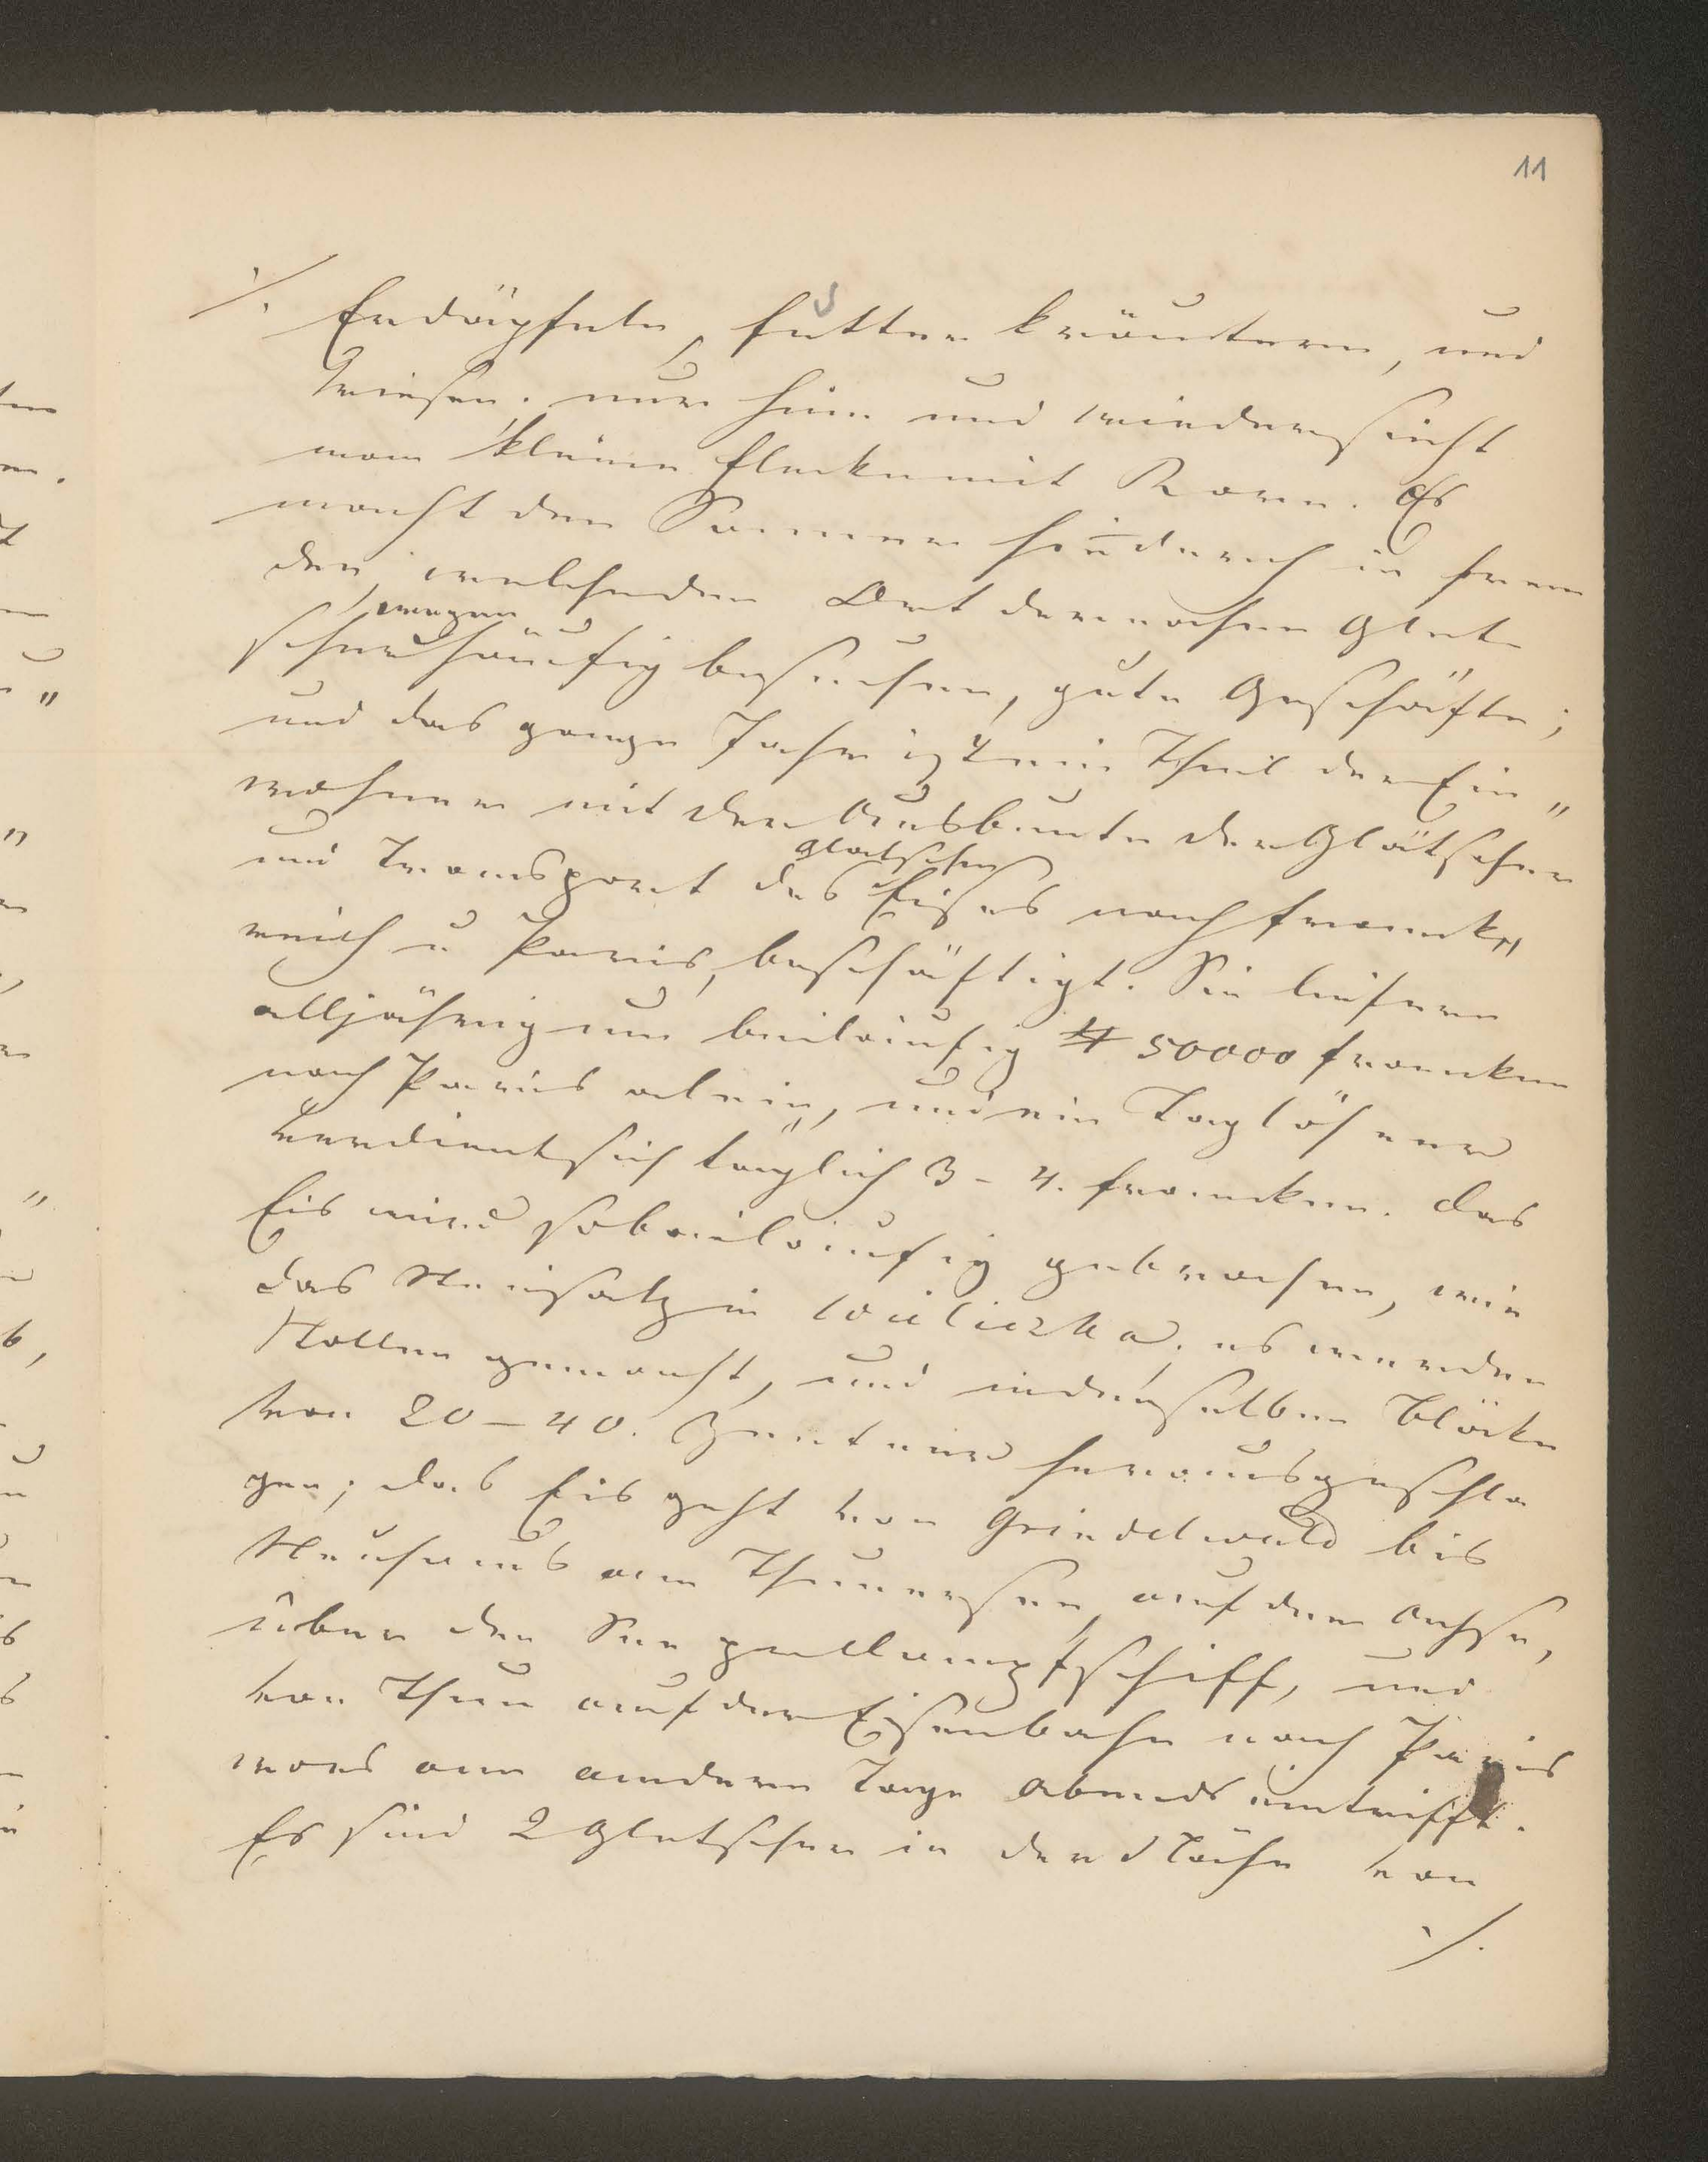 11
./. Erdäpfeln, Futter kräutern, und
Wiesen. nur hin und wieder sieht
man kleine Flecken mit Korn. Es
macht den Sommer hindurch in Frem
den, welche den Ort der nahen Glet-
scher wegen häufig besuchen, gute Geschäfte;
und das ganze Jahr ist ein Theil der Ein„
wohner mit der Ausbeute der Glätscher
und Transport des glatscher Eises nach Frank„
reich u Paris, beschäftigt. Sie liefern
alljährig um beiläufig 50000 Franken
nach Paris alein, und ein Taglöhner
verdient sich täglich 3 – 4. Franken. das
Eis wird so beiläufig gebrochen, wie
das Steinsalz in Wieliczka, es werden
Stollen gemacht, und in denselben Blöcke
von 20 – 40. Zentner herausgeschla
gen; das Eis geht von Grindelwald bis
Neuhaus am Thunersee, auf der Achse,
über den See per Dampfschiff, und
von Thun auf der Eisenbahn nach Paris
was am andern Tage Abends eintrifft.
Es sind 2 Gletscher in der Nähe von
./.